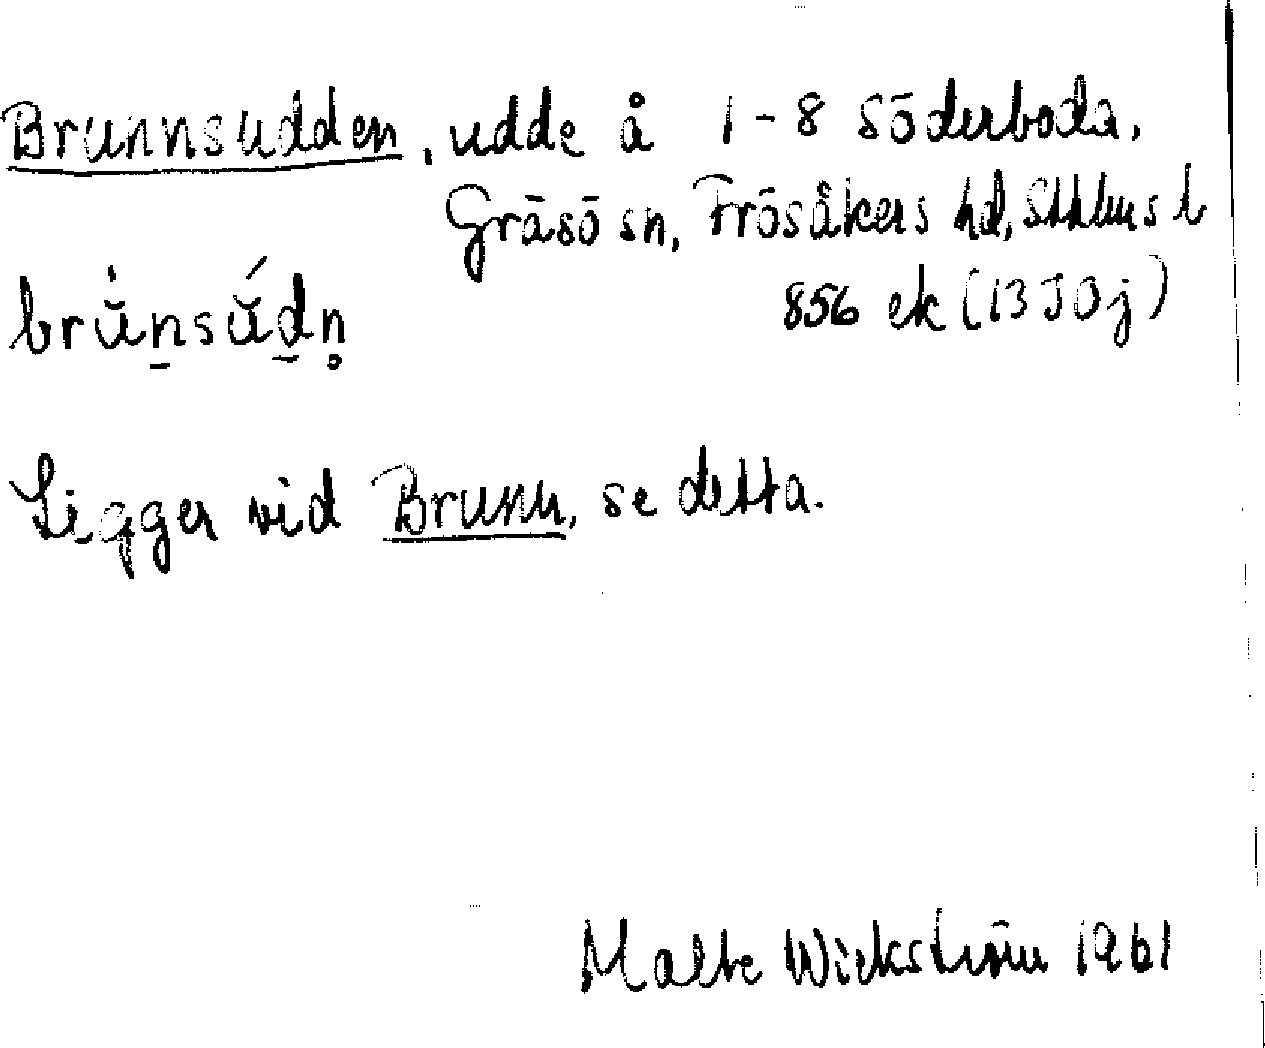 Brunnsudden, udde å 1-8 Söderboda,
Gräsö sn, Frösåkers hd, Sthlms l
brŭ̀n̠sŭ́d̠n̥ 856 ek (13 I 0 j)
Ligger vid Brunn, se detta.
Malte Wickström 1961